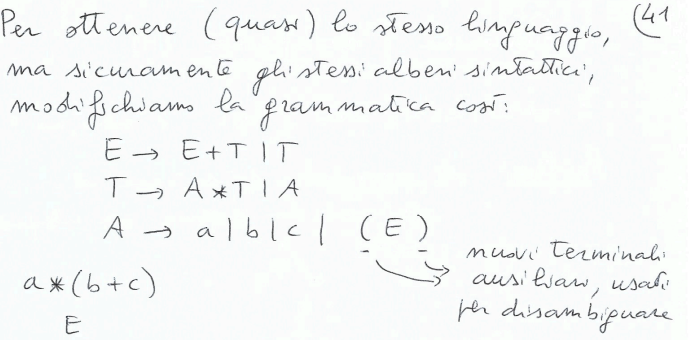 Per ottenere (quasi) lo stesso linguaggio, (41
ma sicuramente gli stessi alberi sintattici,
modifichiamo la grammatica così:
E → E+T | T
T → A*T | A
A → a | b | c | (E)
nuovi terminali
ausiliari, usati
per disambiguare
a*(b+c)
E